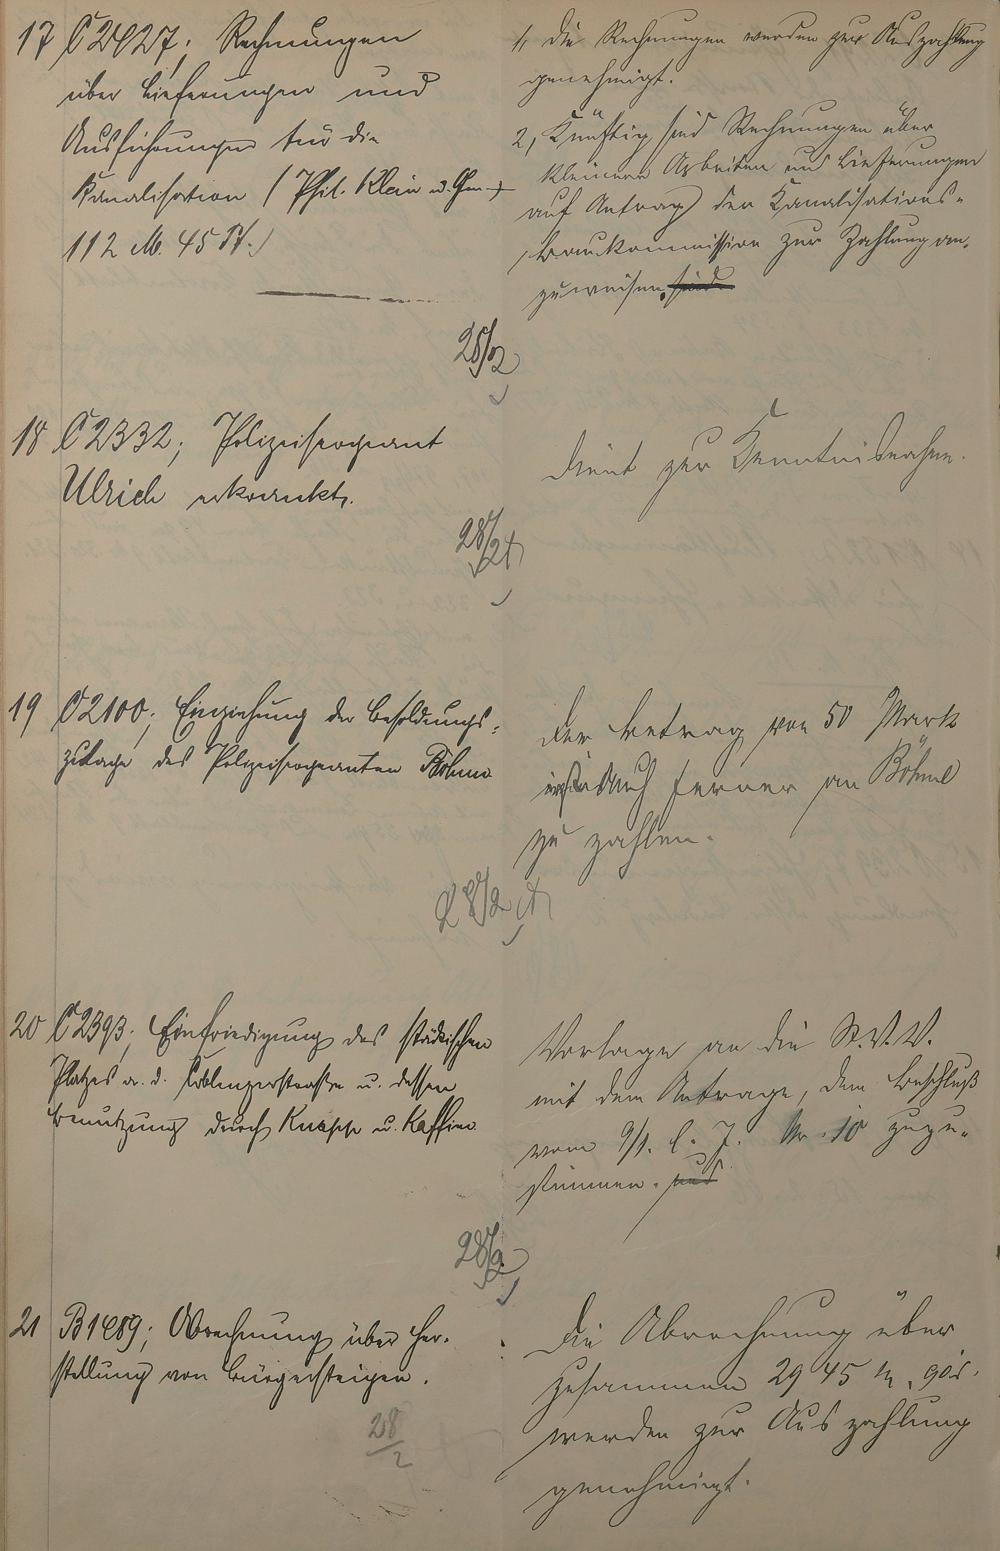 17 C 2427; Rechnungen
über Lieferungen und
Ausführungen für die
Kanalisation (Phil. Klein u. Gen.
112 M. 45 Pf.)
1, Die Rechnungen werden zur Auszahlung
genehmigt.
2, Künftig sind Rechnungen über
kleinere Arbeiten und Lieferungen
auf Antrag der Kanalisations-
Baukommission zur Zahlung an-
zuweisen.
28/2
18 C 2332; Polizeisergeant
Ulrich erkrankt.
Dient zur Kenntnisnahme.
28/2
19 C 2100; Einziehung der Besoldungs-
zulage des Polizeisergeanten Böhme
Der Betrag von 50 Mark
ist auch ferner an Böhme
zu zahlen.
28/2
20 C 2393; Einfriedigung des städtischen
Platzes a. d. Coblenzerstraße u. dessen
Benutzung durch Knapp u.
Vorlage an die St.V.V.
mit dem Antrage, dem Beschluß
vom 9/1. l. J. Nr. 10 zuzu-
stimmen.
28/2
21 B 1489; Abrechnung über Her-
stellung von Bürgersteigen.
Die Abrechnung über
zusammen 2945 M.
werden zur Auszahlung
genehmigt.
28/2